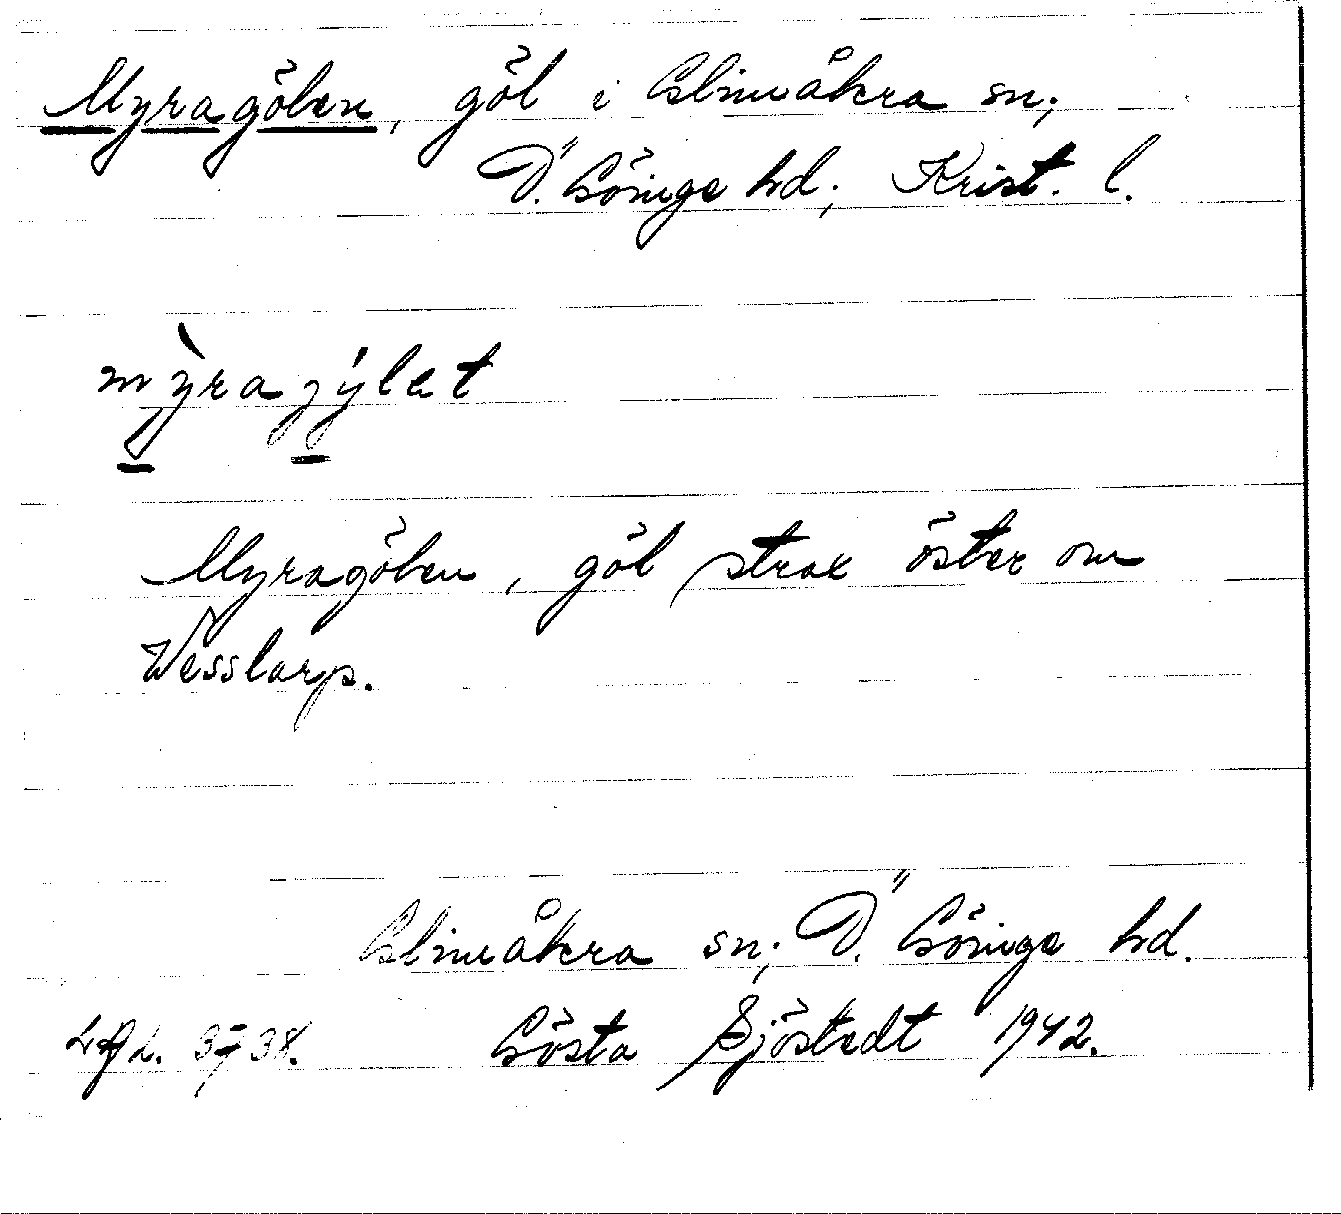 Myragölen, göl i Glimåkra sn;
Ö. Göinge hd; Krist. l.
mỳraɟýlet
Myragölen, göl strax öster om
Wesslarp.
Glimåkra sn; Ö. Göinge hd.
3738. Gösta Sjöstedt 1942.